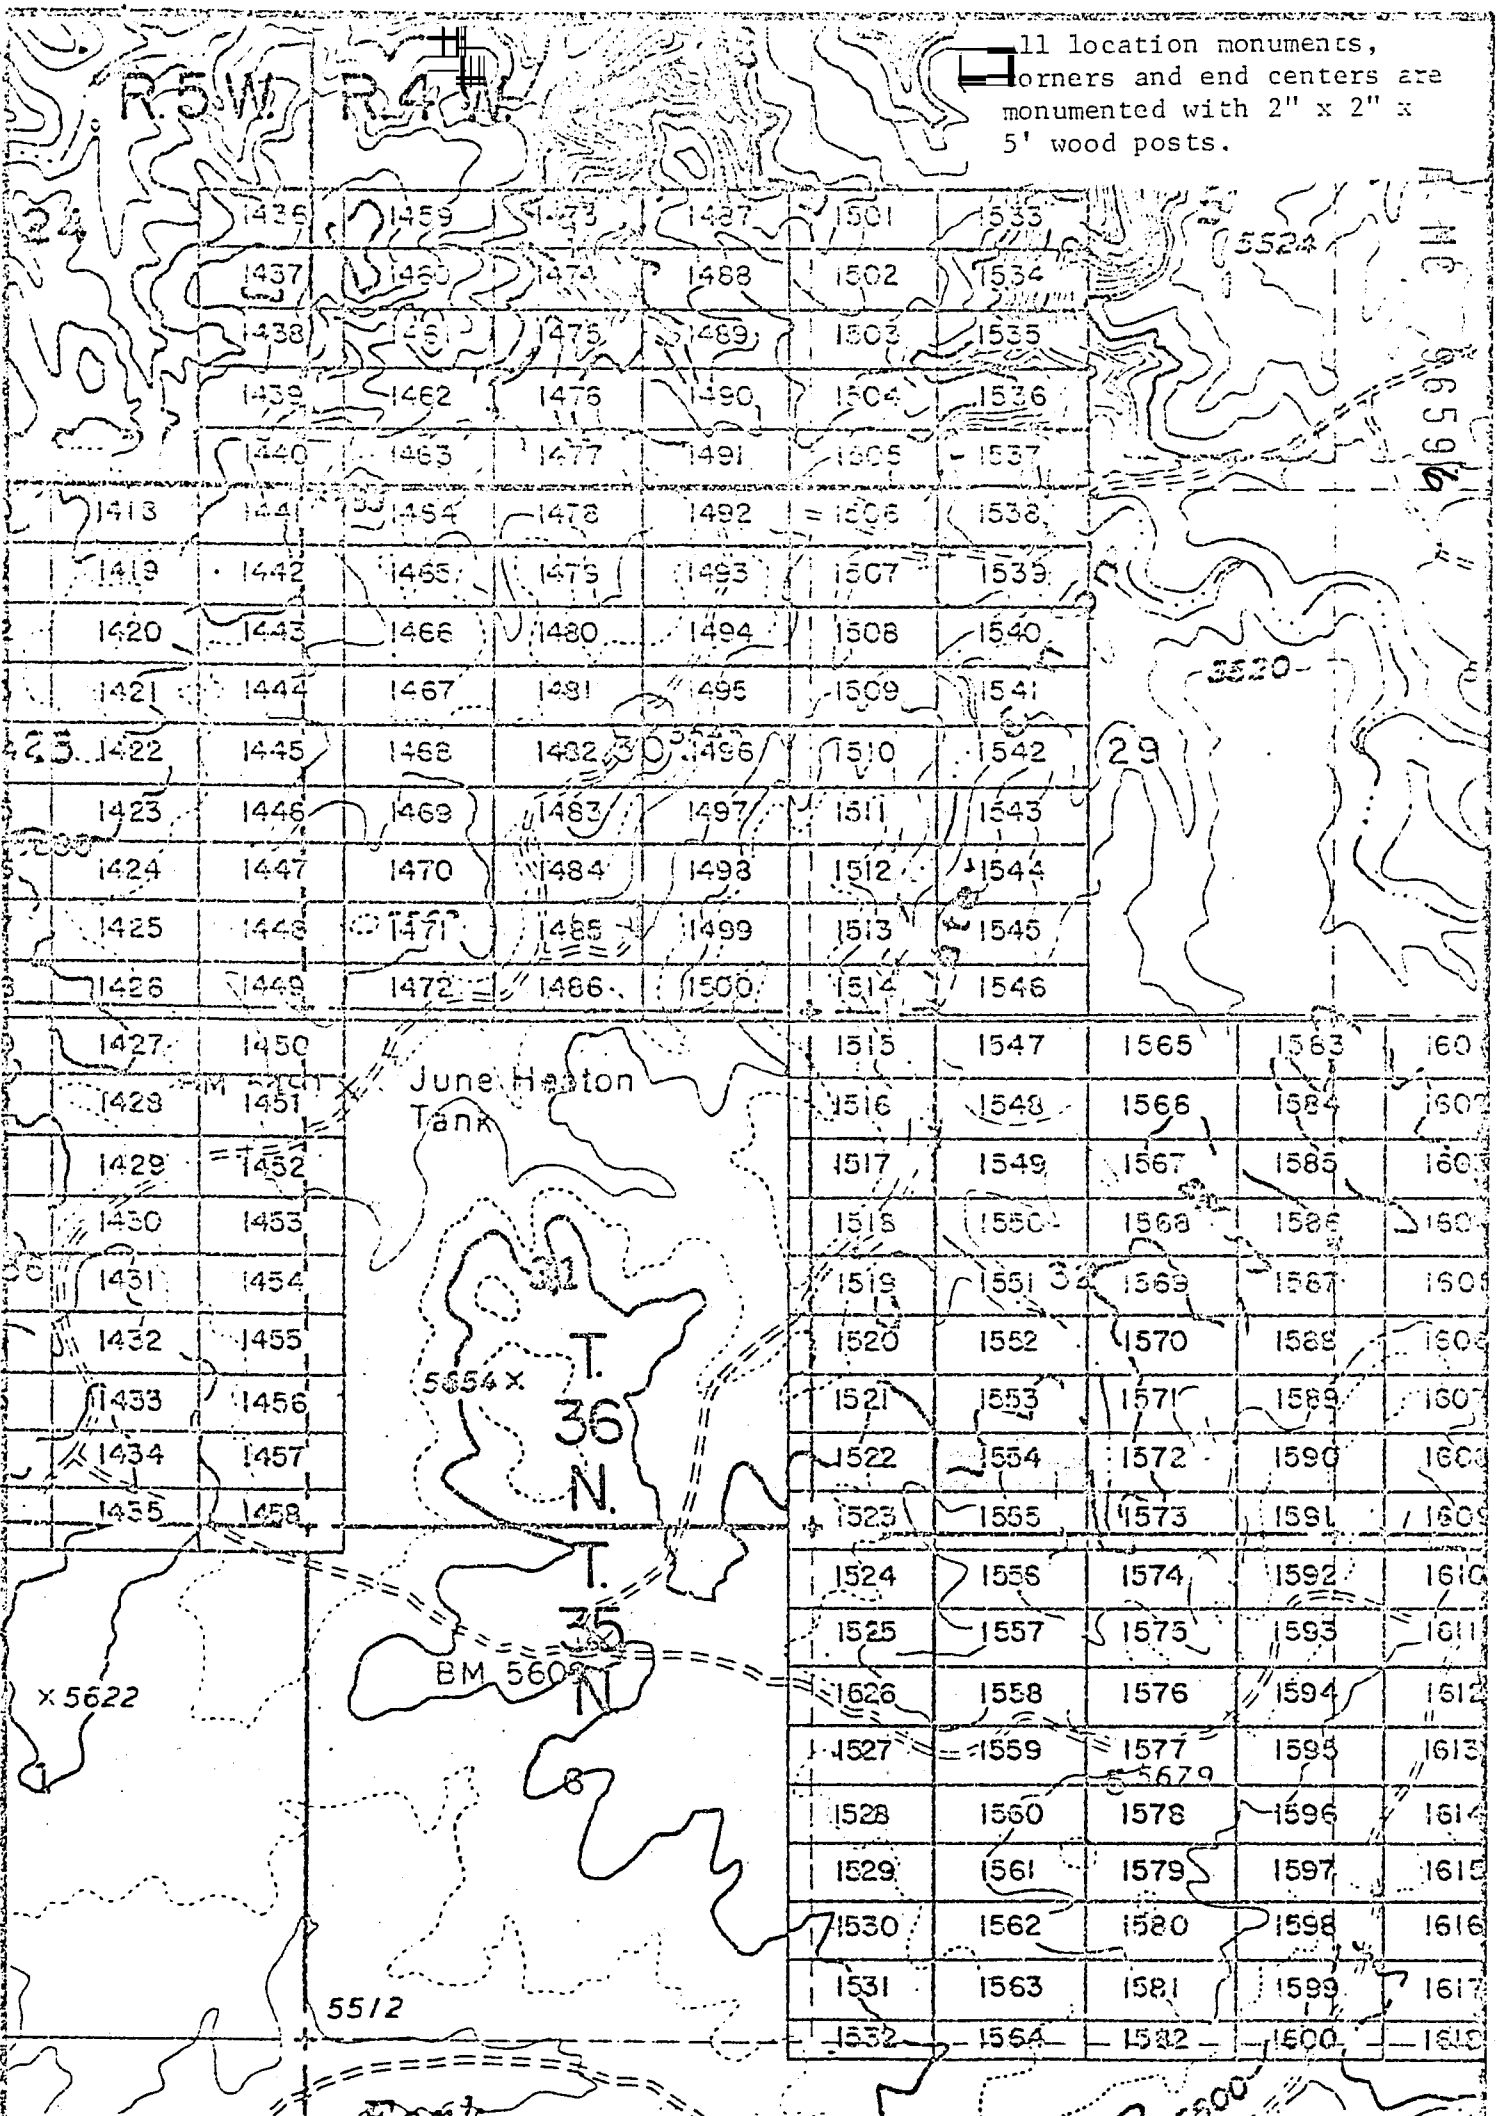 ll location monuments,
orners and end centers are
monumented with 2" x 2" x
5' wood posts.
R.5W. R.4W.
24 1436 1459 1473 1487 1501 1533
5524
1437 1460 1474 1488 1502 1534
1438 1461 1475 1489 1503 1535
1439 1462 1476 1490 1504 1536
1440 1463 1477 1491 1505 1537
1418 1441 1464 1478 1492 1506 1538
1419 1442 1465 1479 1493 1507 1539
1420 1443 1466 1480 1494 1508 1540
1421 1444 1467 1481 1495 1509 1541
5520
1422 1445 1468 1482 30 1496 1510 1542 29
1423 1446 1469 1483 1497 1511 1543
1424 1447 1470 1484 1498 1512 1544
1425 1448 1471 1485 1499 1513 1545
1426 1449 1472 1486 1500 1514 1546
1427 1450 1515 1547 1565 1583 160
June Heaton
Tank
1428 1451 1516 1548 1566 1584 1602
1429 1452 1517 1549 1567 1585 1603
1430 1453 1518 1550 1568 1586 160
1431 1454 31 1519 1551 32 1569 1587 1605
1432 1455 T. 1520 1552 1570 1588 1606
5654 x
1433 1456 36 1521 1553 1571 1589 1607
1434 1457 N. 1522 1554 1572 1590 1608
1435 1458 1523 1555 1573 1591 1609
T. 1524 1556 1574 1592 1610
35 1525 1557 1575 1593 1611
BM 560
N
x 5622 1626 1558 1576 1594 1612
1 6 1527 1559 1577 1595 1613
5 5679
1528 1560 1578 1596 1614
1529 1561 1579 1597 1615
1530 1562 1580 1598 1616
1531 1563 1581 1599 1617
5512
1532 1564 1582 1600 1618
5600